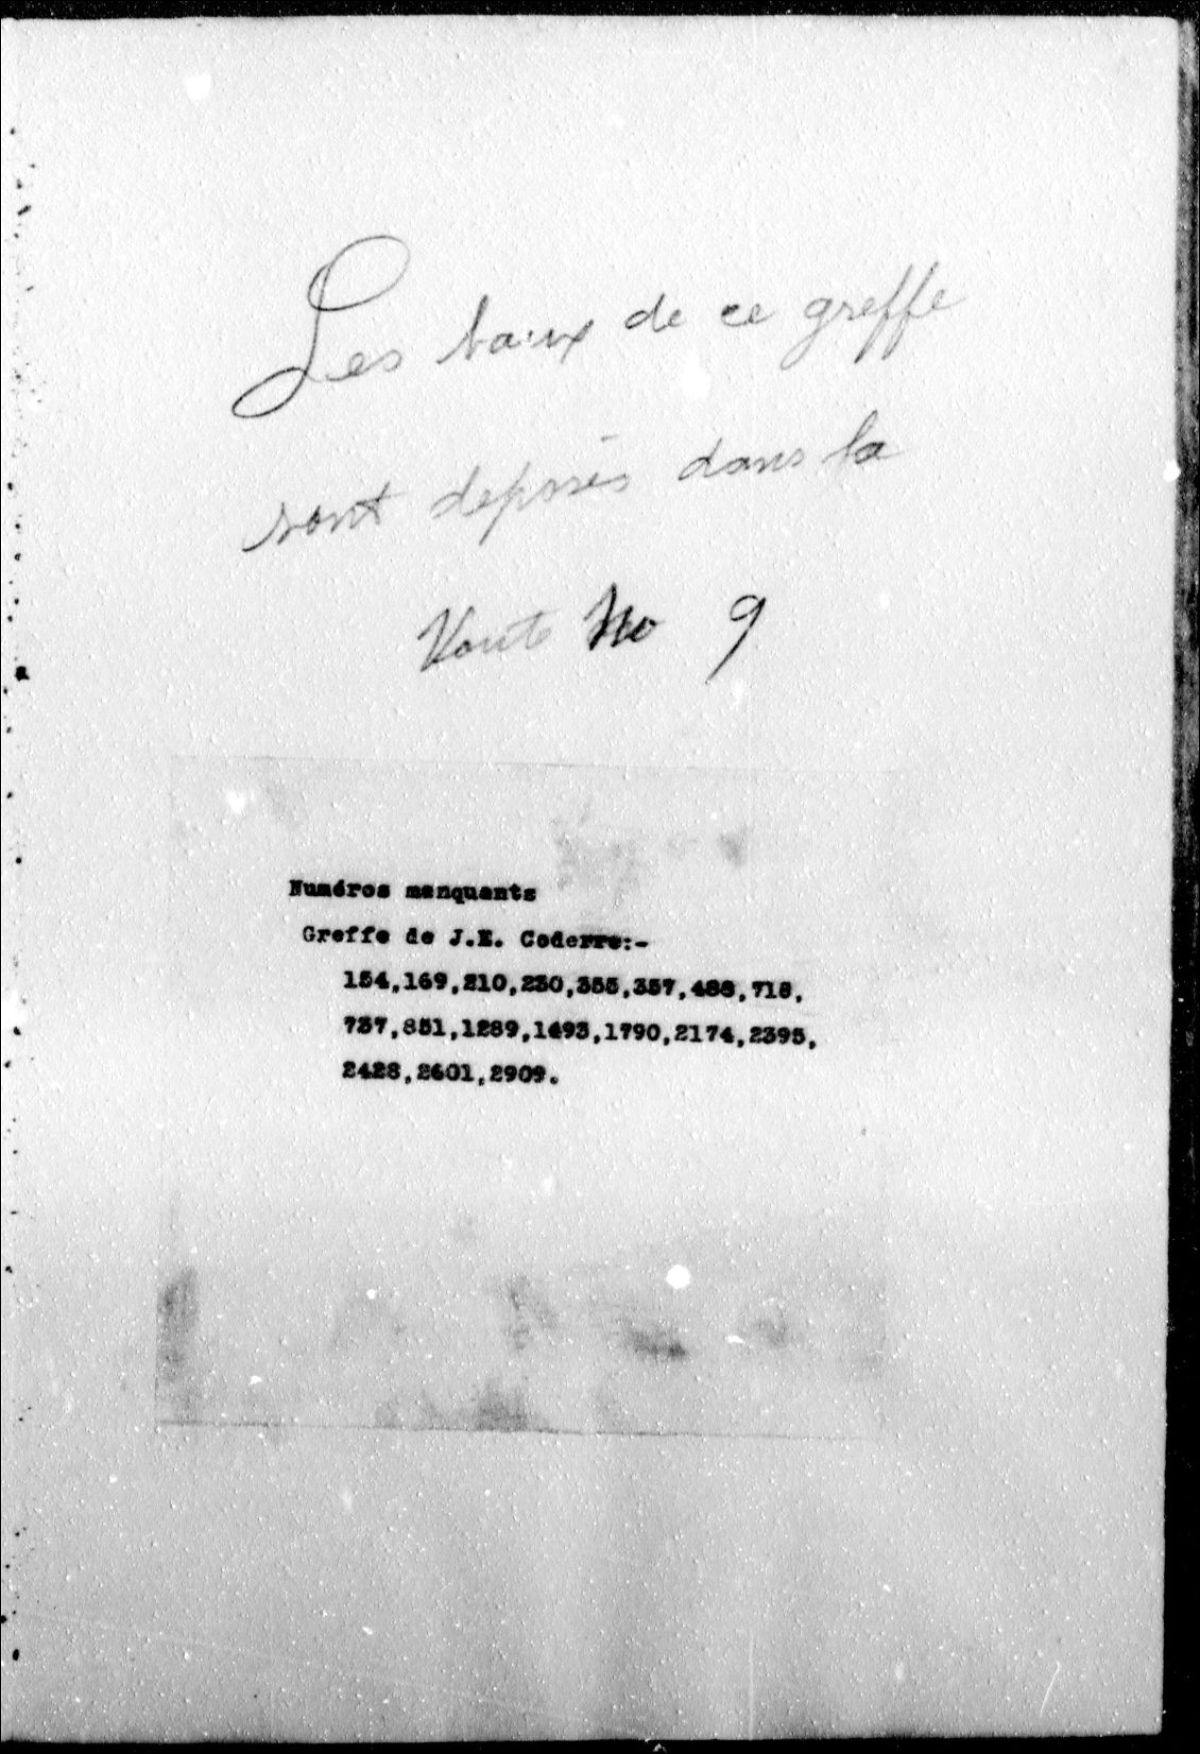 Les baux de ce greffe
sont deposés dans la
Voute No 9
Numéros manquants
Greffe de J.E. Coderre:-
154,169,210,230,355,357,488,718,
737,851,1289,1493,1790,2174,2395,
2428,2601,2909.